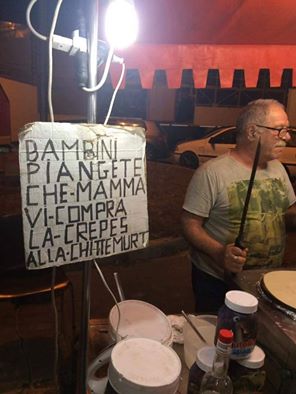 BAMBINI
PIANGETE
CHE-MAMMA
VI-COMPRA
LA-CRÊPES
ALLA-CHITEMURT